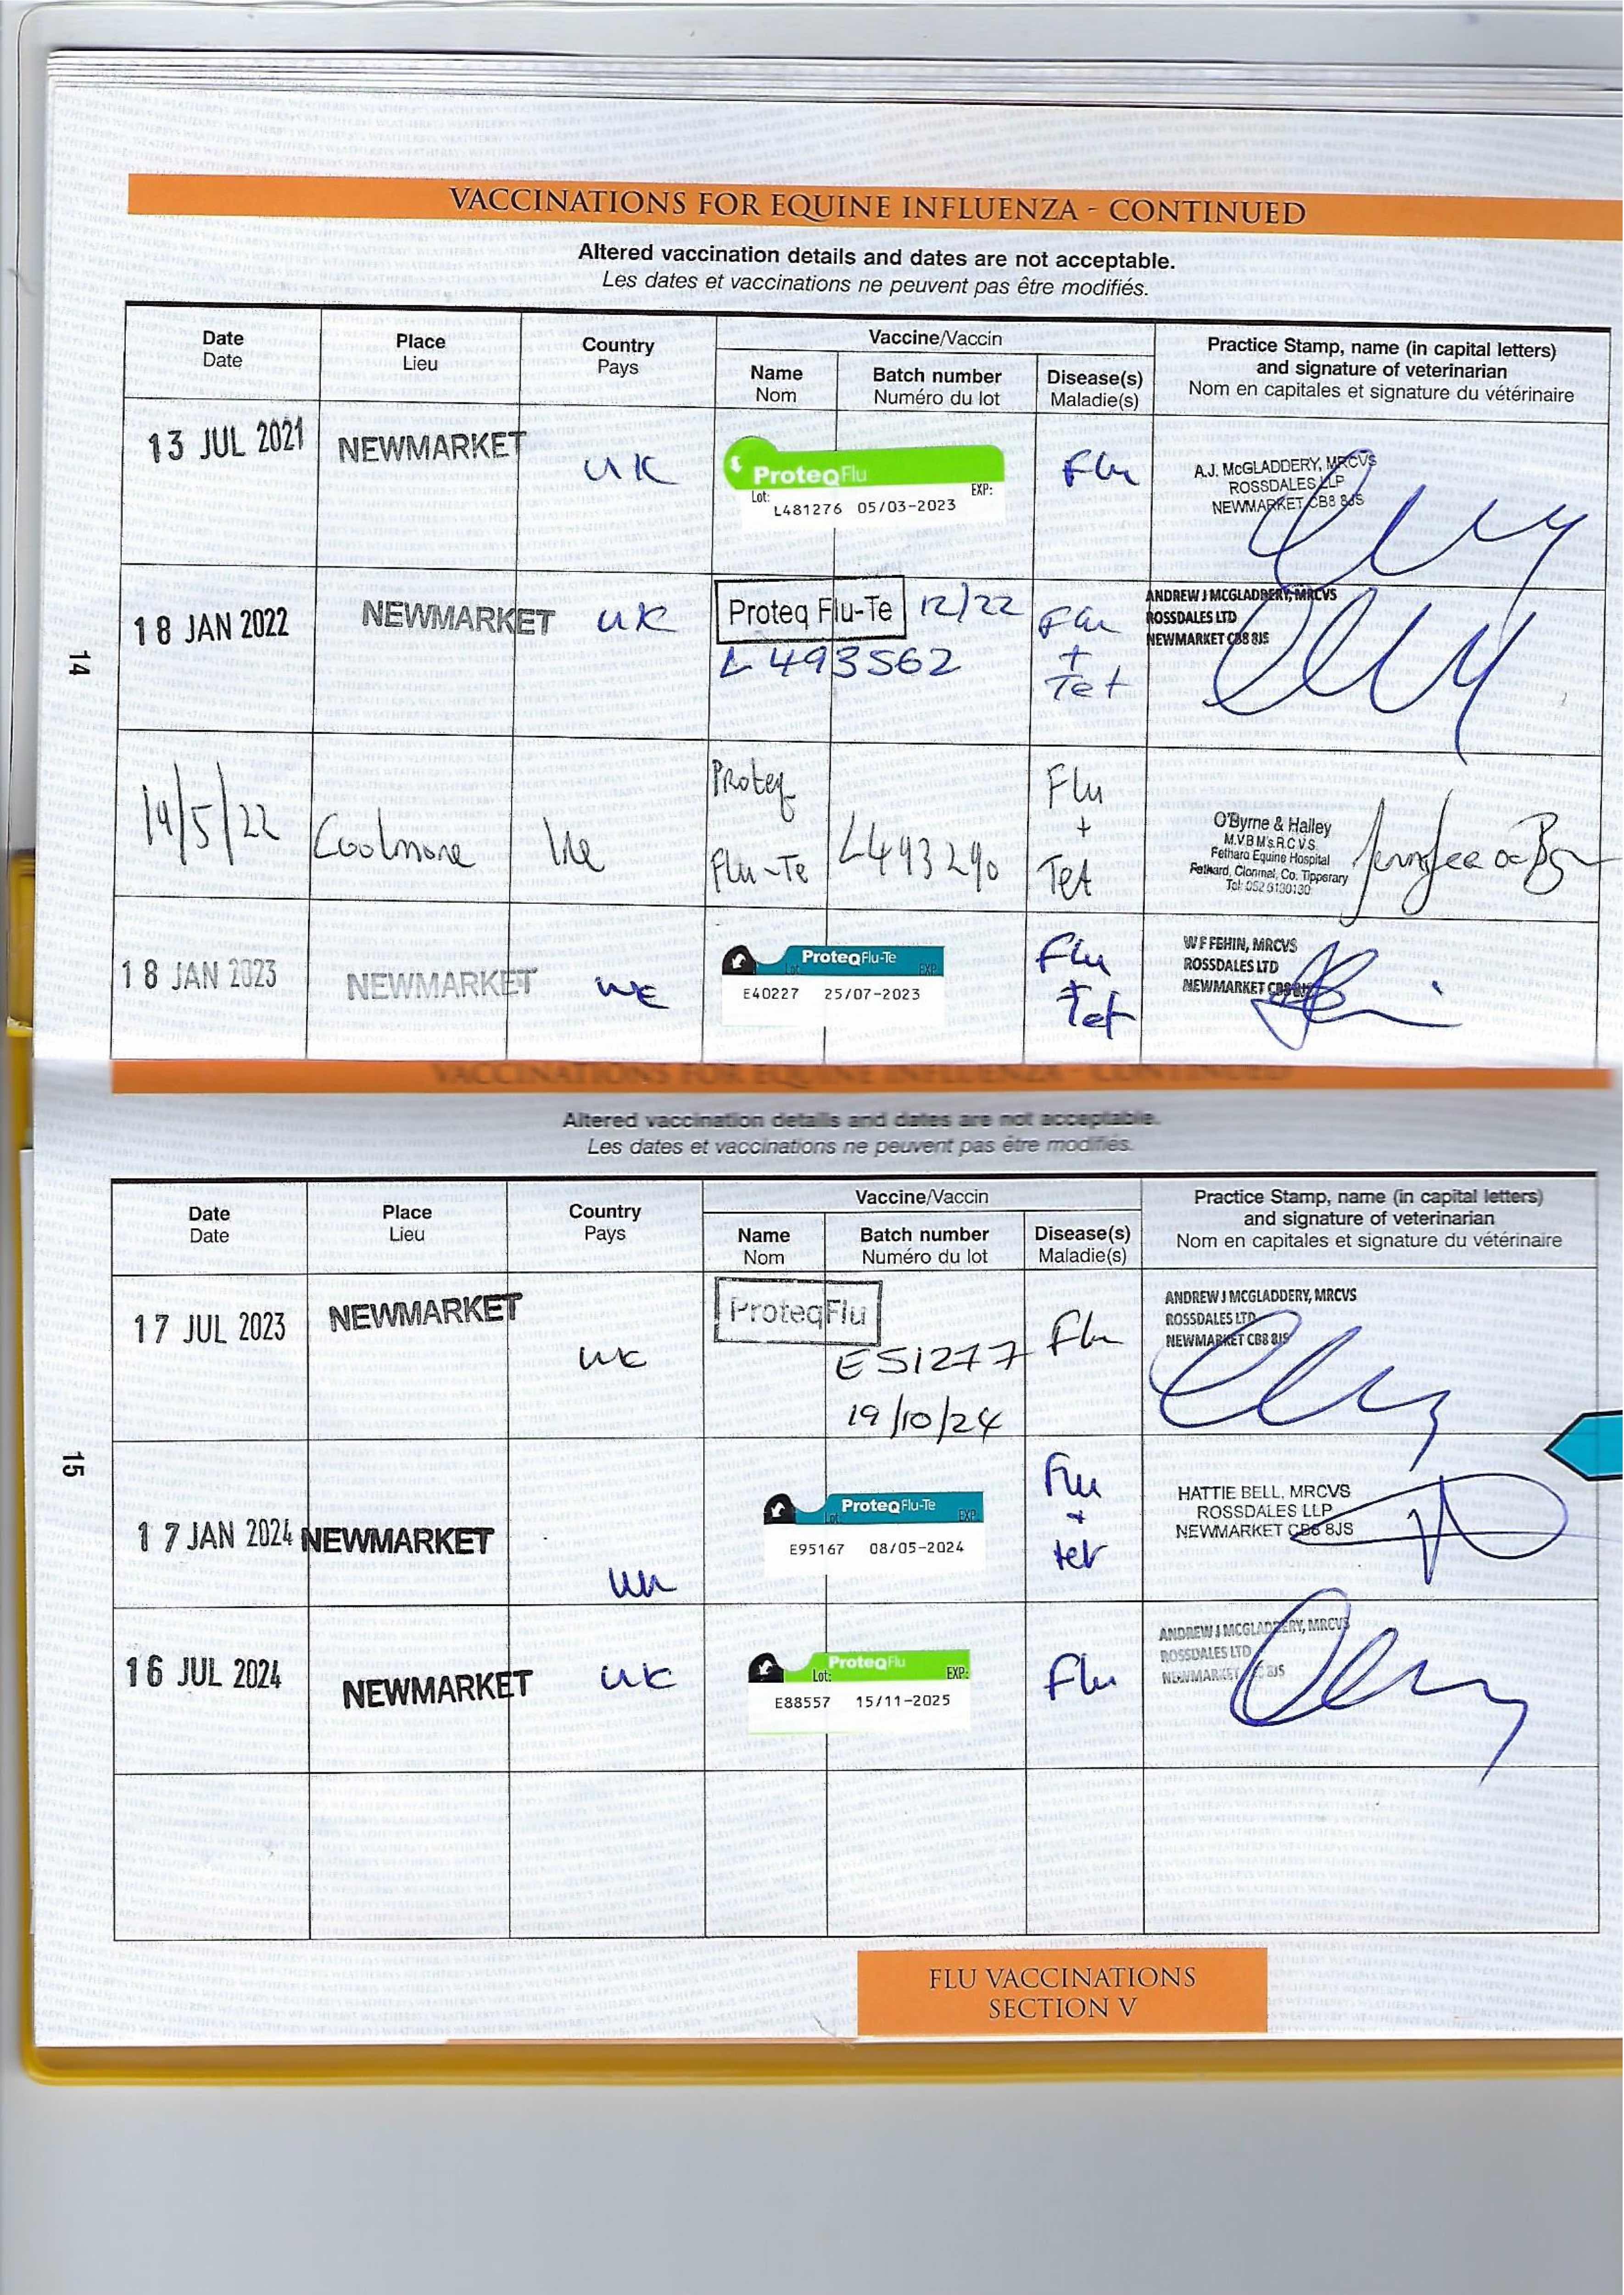 VACCINATIONS FOR EQUINE INFLUENZA - CONTINUED
Altered vaccination details and dates are not acceptable.
Les dates et vaccinations ne peuvent pas être modifiés.
Date
Date
Place
Lieu
Country
Pays
Vaccine/Vaccin
Name
Nom
Batch number
Numéro du lot
Disease(s)
Maladie(s)
Practice Stamp, name (in capital letters)
and signature of veterinarian
Nom en capitales et signature du vétérinaire
13 JUL 2021
NEWMARKET
UK
ProteqFlu
Lot: EXP:
L481276 05/03-2023
Flu
A.J. McGLADDERY, MRCVS
ROSSDALES LLP
NEWMARKET CB8 8JS
18 JAN 2022
NEWMARKET
UK
Proteq Flu-Te 12/22
L493562
Flu
+
Tet
ANDREW J MCGLADDERY, MRCVS
ROSSDALES LTD
NEWMARKET CB8 8JS
14
19/5/22
Coolmore
Ire
Proteq
Flu-Te
L493290
Flu
+
Tet
O'Byrne & Halley
M.V.B M's.R.C.V.S.
Fethard Equine Hospital
Fethard, Clonmel, Co. Tipperary
Tel: 052 6130130
18 JAN 2023
NEWMARKET
UK
ProteqFlu-Te
Lot: EXP:
E40227 25/07-2023
Flu
+
Tet
W F FEHIN, MRCVS
ROSSDALES LTD
NEWMARKET CB8 8JS
VACCINATIONS FOR EQUINE INFLUENZA - CONTINUED
Altered vaccination details and dates are not acceptable.
Les dates et vaccinations ne peuvent pas être modifiés.
Date
Date
Place
Lieu
Country
Pays
Vaccine/Vaccin
Name
Nom
Batch number
Numéro du lot
Disease(s)
Maladie(s)
Practice Stamp, name (in capital letters)
and signature of veterinarian
Nom en capitales et signature du vétérinaire
17 JUL 2023
NEWMARKET
UK
ProteqFlu
E51277
19/10/24
Flu
ANDREW J MCGLADDERY, MRCVS
ROSSDALES LTD
NEWMARKET CB8 8JS
15
17 JAN 2024
NEWMARKET
UK
ProteqFlu-Te
Lot: EXP:
E95167 08/05-2024
Flu
+
tet
HATTIE BELL, MRCVS
ROSSDALES LLP
NEWMARKET CB8 8JS
16 JUL 2024
NEWMARKET
UK
ProteqFlu
Lot: EXP:
E88557 15/11-2025
Flu
ANDREW J MCGLADDERY, MRCVS
ROSSDALES LTD
NEWMARKET 8JS
FLU VACCINATIONS
SECTION V